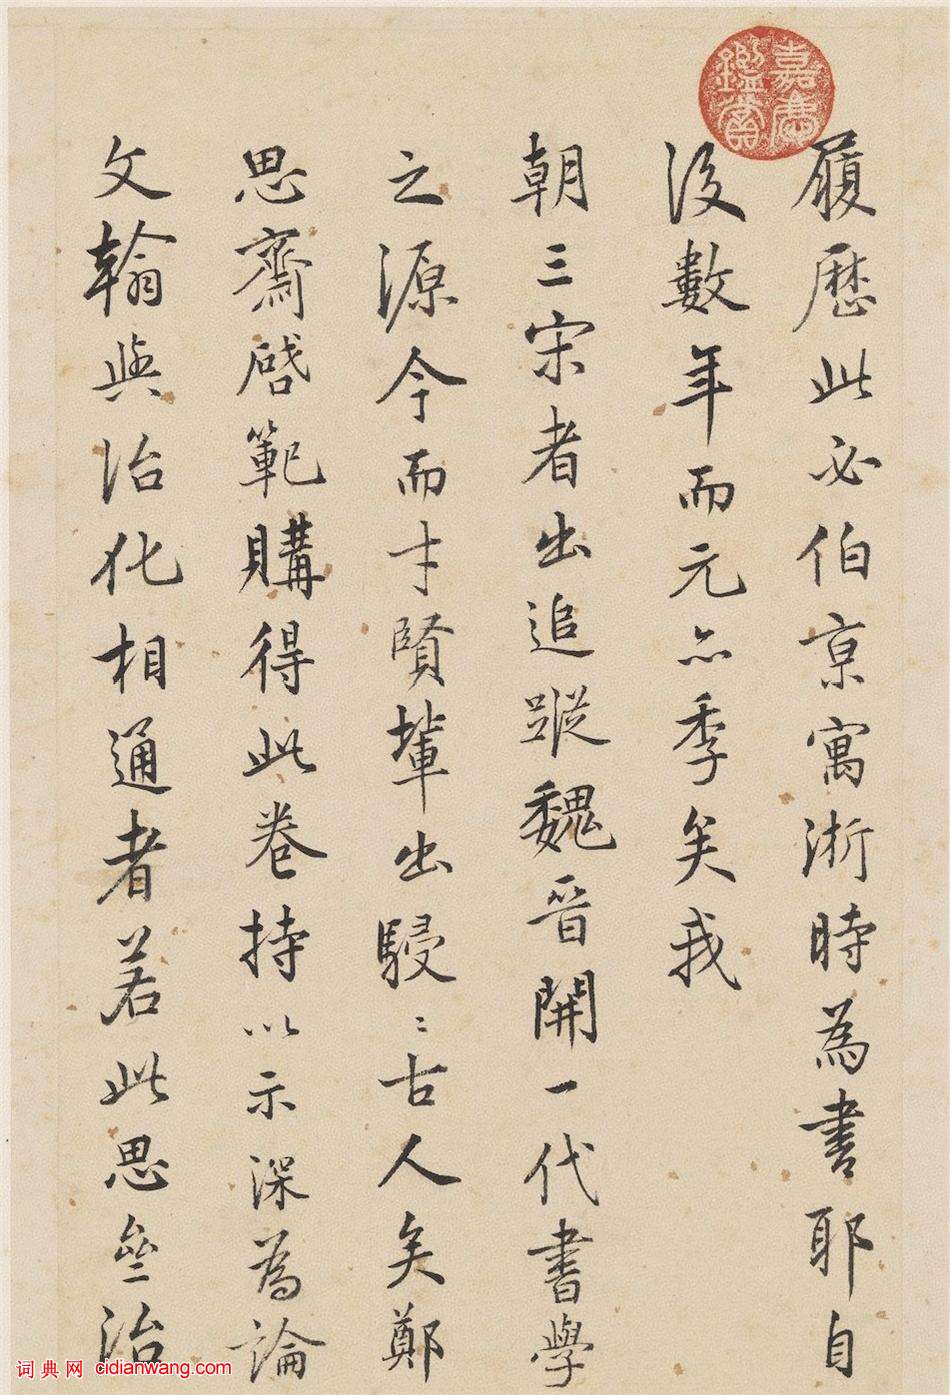 嘉慶
鑑賞
履歷此必伯京寓浙時為書耶自
没數年而元亦季矣我
朝三宋者出追蹤魏晉開一代書學
之源今而才賢輩出駸〻古人矣鄭
思齋啓範購得此卷持以示深為論
文翰與治化相通者若此思叅治
词典网 cidianwang.com